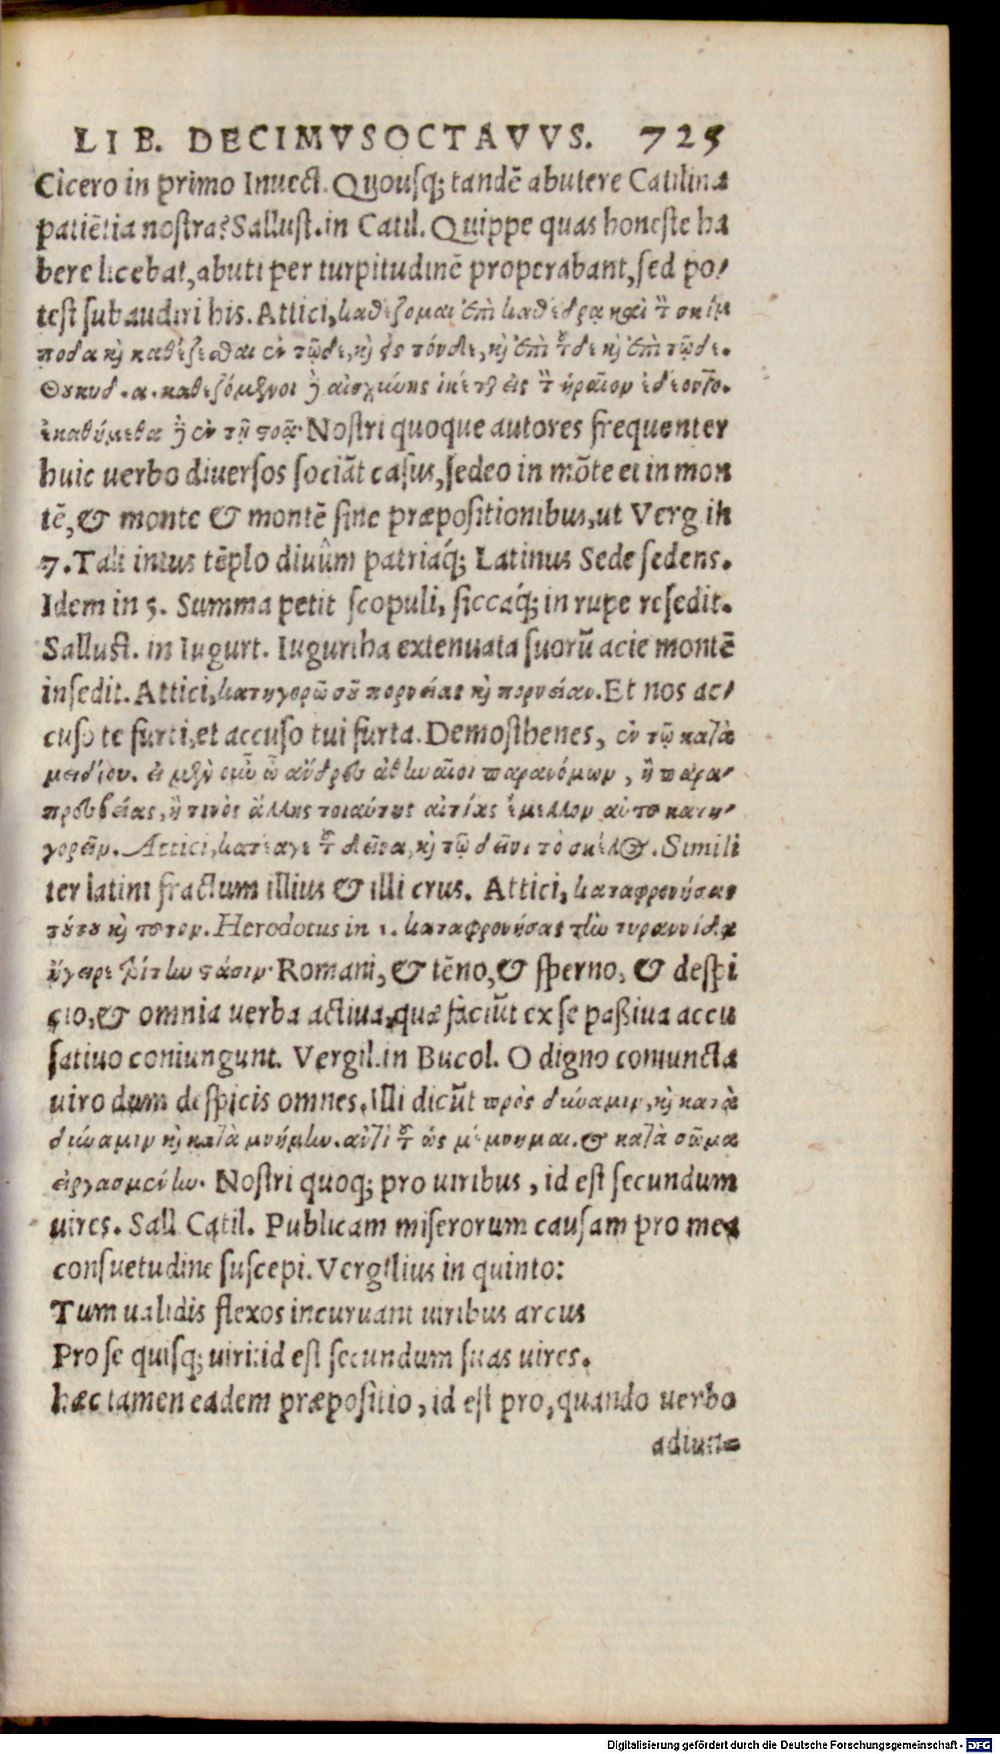 LIB. DECIMVSOCTAVVS. 725
Cicero in primo Inuect. Quousq; tandē abutere Catilina
patiētia nostra? Sallust. in Catil. Quippe quas honeste ha
bere licebat, abuti per turpitudinē properabant, sed po-
test subaudiri his. Attici, καθέζομαι ἐπὶ καθέδρᾳ καὶ
ποδα καὶ καθέζεσθαι ἐν τῷδε, καὶ ἐς τόνδε, καὶ ἐπὶ τοῦδε καὶ ἐπὶ τῷδε.
Θουκυδ. α. καθεζόμενοι
Nostri quoque autores frequenter
huic uerbo diuersos sociāt casus, sedeo in mōte et in mon
tē, & monte & montē sine præpositionibus, ut Verg. in
7. Tali intus tēplo diuûm patriaq́; Latinus Sede sedens.
Idem in 5. Summa petit scopuli, siccaq́; in rupe resedit.
Sallust. in Iugurt. Iugurtha extenuata suorū acie montē
insedit. Attici, κατηγορῶ σοῦ πορνείας καὶ πορνείαν. Et nos ac-
cuso te furti, et accuso tui furta. Demosthenes, ἐν τῷ κατὰ
μειδίου. εἰ μὲν οὖν ὦ ἄνδρες ἀθηναῖοι παρανόμων, ἢ παρα-
πρεσβείας, ἢ τινὸς ἄλλης τοιαύτης αἰτίας ἔμελλον αὐτοῦ κατη-
γορεῖν. Attici, κατέαγε τοῦ δεῖνα, καὶ τῷ δεῖνι τὸ σκέλος. Simili
ter latini fractum illius & illi crus. Attici, καταφρονήσας
τούτου καὶ τοῦτον. Herodotus in 1. καταφρονήσας τὴν τυραννίδα
ἤγειρε τρίτην στάσιν. Romani, & tēno, & sperno, & despi
cio, & omnia uerba actiua, quæ faciūt ex se paßiua accu
satiuo coniungunt. Vergil. in Bucol. O digno coniuncta
uiro dum despicis omnes. Illi dicūt πρὸς δύναμιν, καὶ κατὰ
δύναμιν καὶ κατὰ μνήμην. ἀντὶ τοῦ ὡς μέμνημαι. & κατὰ σῶμα
εἰργασμένην. Nostri quoq; pro uiribus, id est secundum
uires. Sall. Catil. Publicam miserorum causam pro mea
consuetudine suscepi. Vergilius in quinto:
Tum ualidis flexos incuruant uiribus arcus
Pro se quisq; uiri: id est secundum suas uires.
hæc tamen eadem præpositio, id est pro, quando uerbo
adiun=
Digitalisierung gefördert durch die Deutsche Forschungsgemeinschaft - DFG